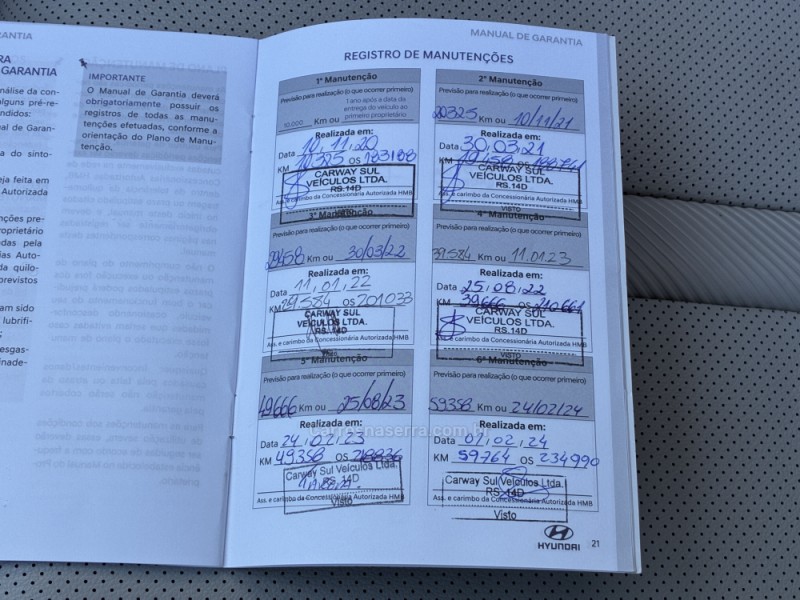 GARANTIA
RA
GARANTIA
nálise da con-
alguns pré-re-
ndidos:
ual de Garan-
do sinto-
eja feita em
Autorizada
nções pre-
oprietário
adas pela
ias Auto-
da quilo-
previstos
am sido
lubrifi-
esgas-
inade-
IMPORTANTE
O Manual de Garantia deverá
obrigatoriamente possuir os
registros de todas as manu-
tenções efetuadas, conforme a
orientação do Plano de Manu-
tenção.
MANUAL DE GARANTIA
REGISTRO DE MANUTENÇÕES
1ª Manutenção
Previsão para realização (o que ocorrer primeiro)
10.000 Km ou 1 ano após a data da entrega do veículo ao primeiro proprietário
Realizada em:
Data 10, 11, 20
KM 10.325 OS 183188
CARWAY SUL
VEÍCULOS LTDA.
RS.14D
Ass. e carimbo da Concessionária Autorizada HMB
2ª Manutenção
Previsão para realização (o que ocorrer primeiro)
20325 Km ou 10/11/21
Realizada em:
Data 30, 03, 21
KM 19.458 OS
CARWAY SUL
VEÍCULOS LTDA.
RS.14D
Ass. e carimbo da Concessionária Autorizada HMB
VISTO
3ª Manutenção
Previsão para realização (o que ocorrer primeiro)
29458 Km ou 30/03/22
Realizada em:
Data 11, 01, 22
KM 29.584 OS 201033
CARWAY SUL
VEÍCULOS LTDA.
RS.14D
Ass. e carimbo da Concessionária Autorizada HMB
Visto
4ª Manutenção
Previsão para realização (o que ocorrer primeiro)
39.584 Km ou 11.01.23
Realizada em:
Data 25, 08, 22
KM 39.666 OS 210661
CARWAY SUL
VEÍCULOS LTDA.
RS.14D
Ass. e carimbo da Concessionária Autorizada HMB
VISTO
5ª Manutenção
Previsão para realização (o que ocorrer primeiro)
49666 Km ou 25/08/23
Realizada em:
Data 24, 02, 23
KM 49358 OS 218836
Carway Sul Veículos Ltda.
RS. 14D
Ass. e carimbo da Concessionária Autorizada HMB
Visto
6ª Manutenção
Previsão para realização (o que ocorrer primeiro)
59358 Km ou 24/02/24
Realizada em:
Data 07, 02, 24
KM 59764 OS 234990
Carway Sul Veículos Ltda.
RS. 14D
Ass. e carimbo da Concessionária Autorizada HMB
Visto
carrosnaserra.com.br
HYUNDAI
21